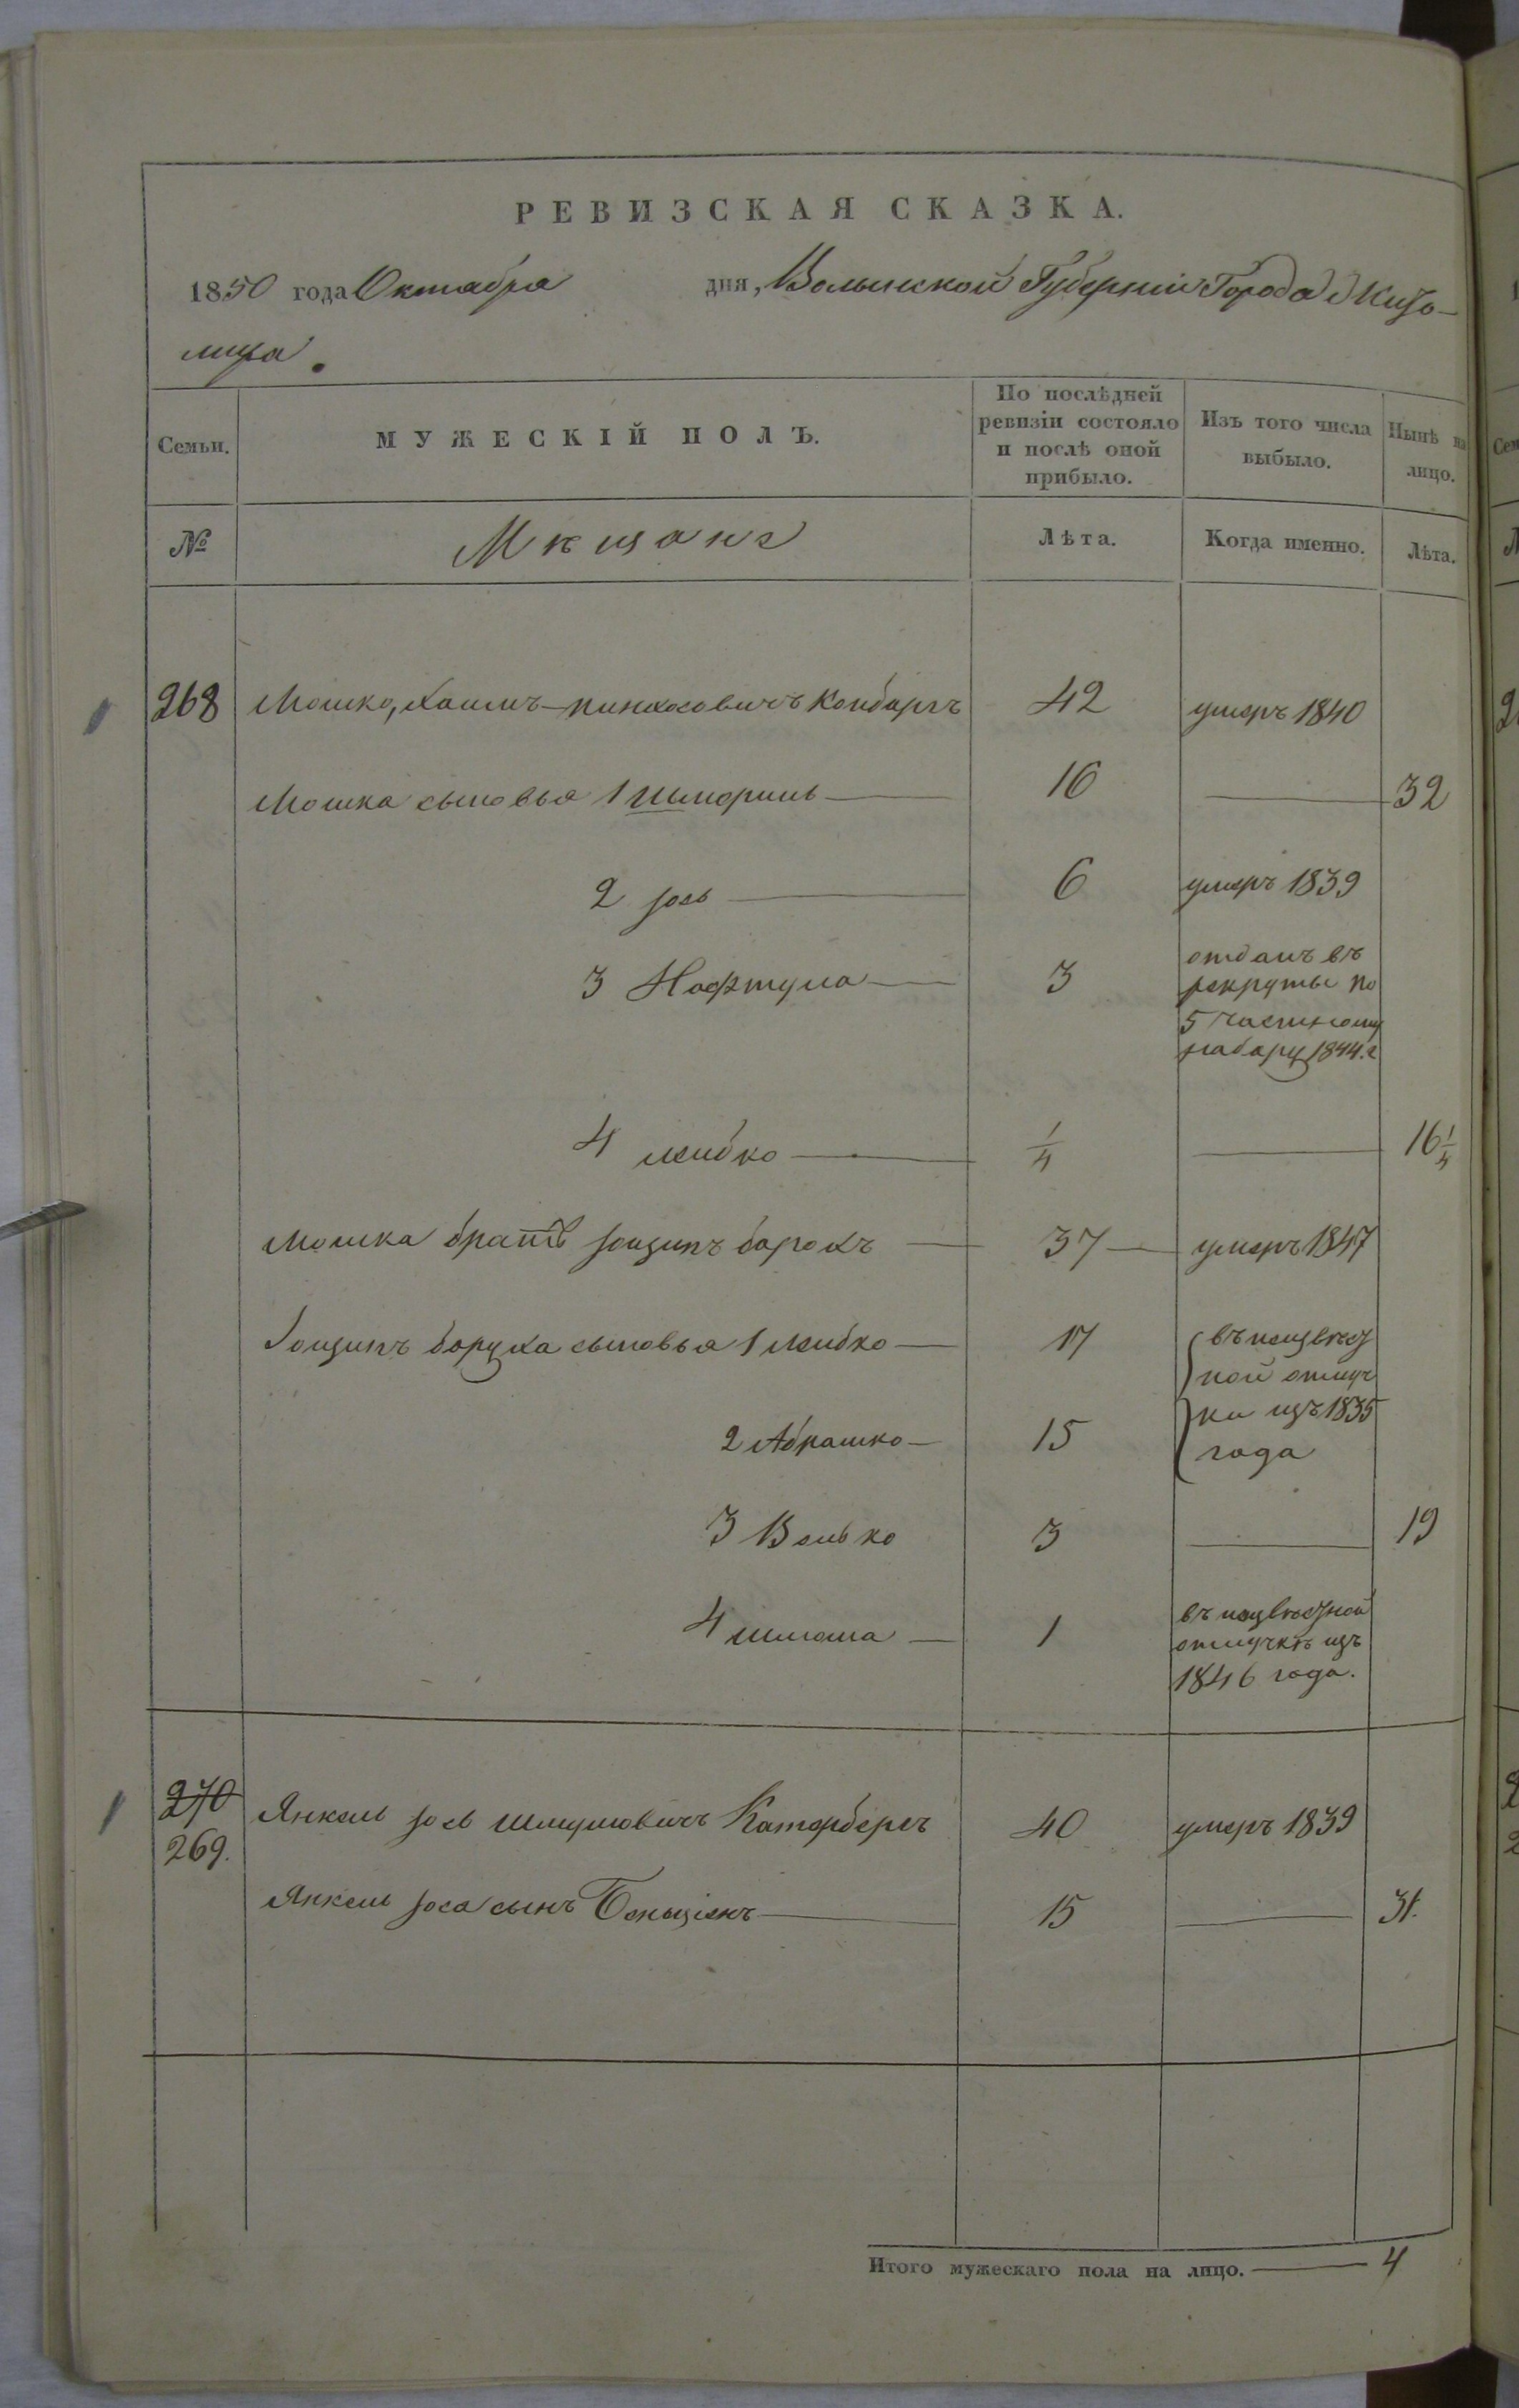 РЕВИЗСКАЯ СКАЗКА.
1850 года Октября дня, Волынской Губерніи Города Жито-
мира.
Семьи.
МУЖЕСКІЙ ПОЛЪ.
По послѣдней ревизіи состояло и послѣ оной прибыло.
Изъ того числа выбыло.
Нынѣ на лицо.
№
Мѣщане
Лѣта.
Когда именно.
Лѣта.
268 Мошко, Хаимъ-Пинхасовичъ 42 умеръ 1840
Мошка сыновья 1 Шмериль 16 32
2 Iось 6 умеръ 1839
3 Нафтула 3 отданъ въ
рекруты по
5 частному
набору 1844. г
4 Лейбко 1/4 16 1/4
Мошка братъ Iоципъ Борохъ 37 умеръ 1847
Iоципъ Боруха сыновья 1 Лейбко 17 въ неизвѣст
ной отлуч
2 Абрашко 15 ки изъ 1835
года
3 Волько 3 19
4 Шлома 1 въ неизвѣстной
отлучкѣ изъ
1846 года.
270
269. Янкель Iось Шмулёвичъ Катербергъ 40 умеръ 1839
Янкель Iося сынъ Бенционъ 15 31.
Итого мужескаго пола на лицо. 4